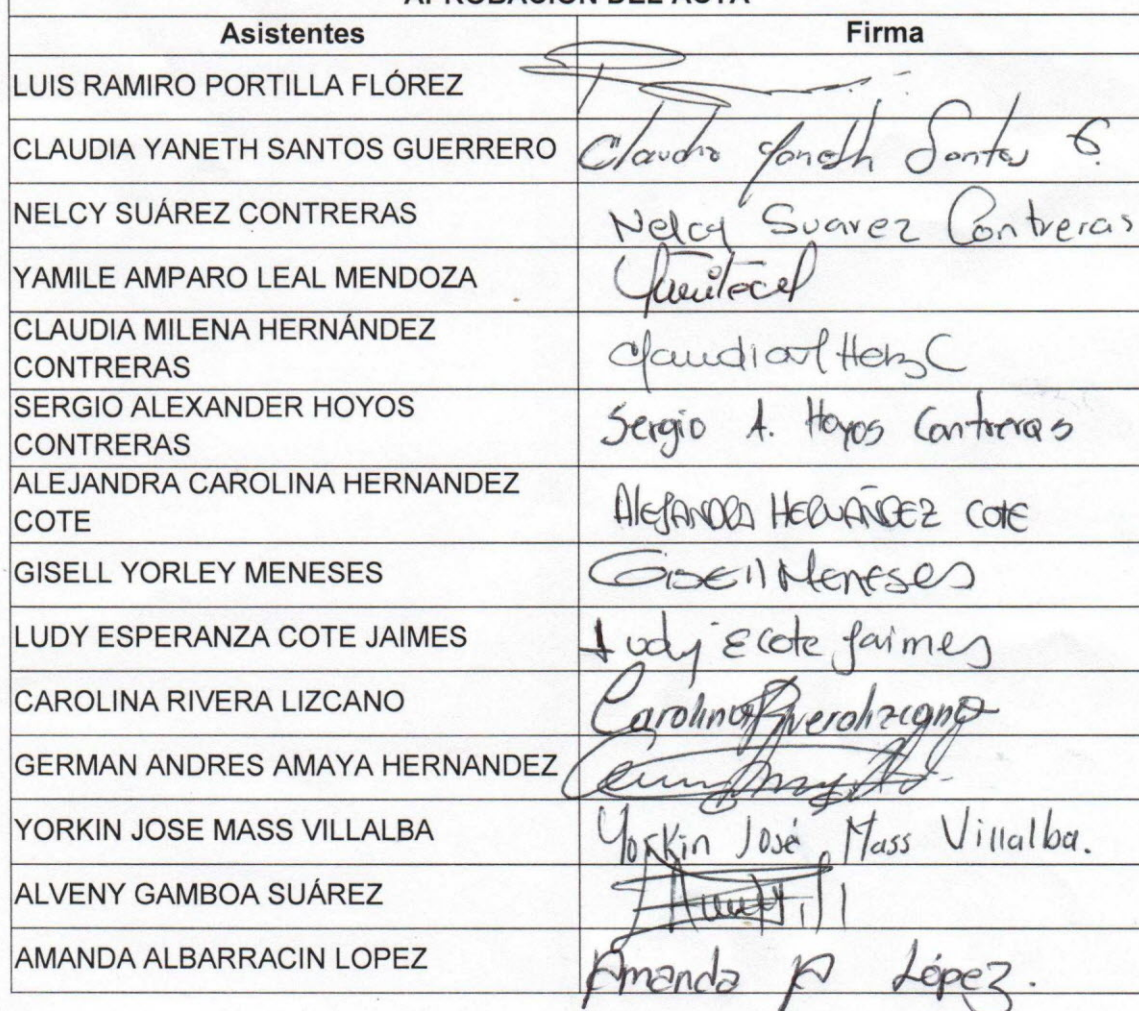 APROBACIÓN DEL ACTA
Asistentes Firma
LUIS RAMIRO PORTILLA FLÓREZ
CLAUDIA YANETH SANTOS GUERRERO Claudia Yaneth Santos G.
NELCY SUÁREZ CONTRERAS Nelcy Suarez Contreras
YAMILE AMPARO LEAL MENDOZA
CLAUDIA MILENA HERNÁNDEZ
CONTRERAS
SERGIO ALEXANDER HOYOS
CONTRERAS Sergio A. Hoyos Contreras
ALEJANDRA CAROLINA HERNANDEZ
COTE ALEJANDRA HERNÁNDEZ COTE
GISELL YORLEY MENESES Gisell Meneses
LUDY ESPERANZA COTE JAIMES Ludy E cote Jaimes
CAROLINA RIVERA LIZCANO Carolina Rivera Lizcano
GERMAN ANDRES AMAYA HERNANDEZ
YORKIN JOSE MASS VILLALBA Yorkin José Mass Villalba.
ALVENY GAMBOA SUÁREZ
AMANDA ALBARRACIN LOPEZ Amanda A López.